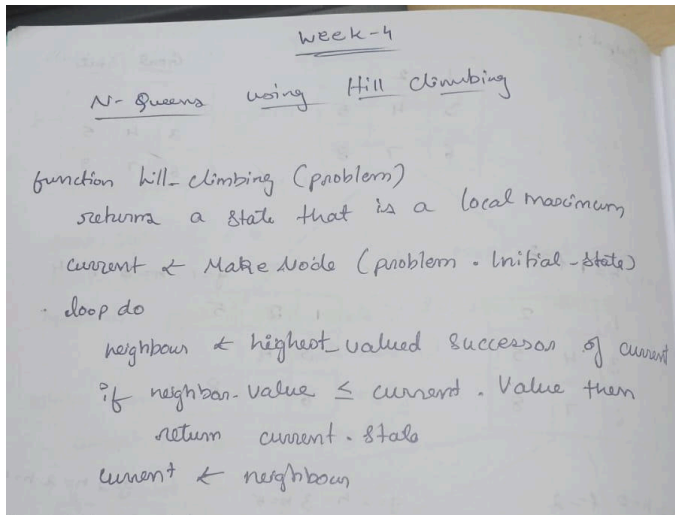 Week-4
N-Queens using Hill Climbing
function hill-climbing (problem)
returns a state that is a local maximum
current ← Make Node (problem . Initial-state)
loop do
neighbour ← highest_valued successor of current
if neighbor.value ≤ current . Value then
return current . state
current ← neighbour